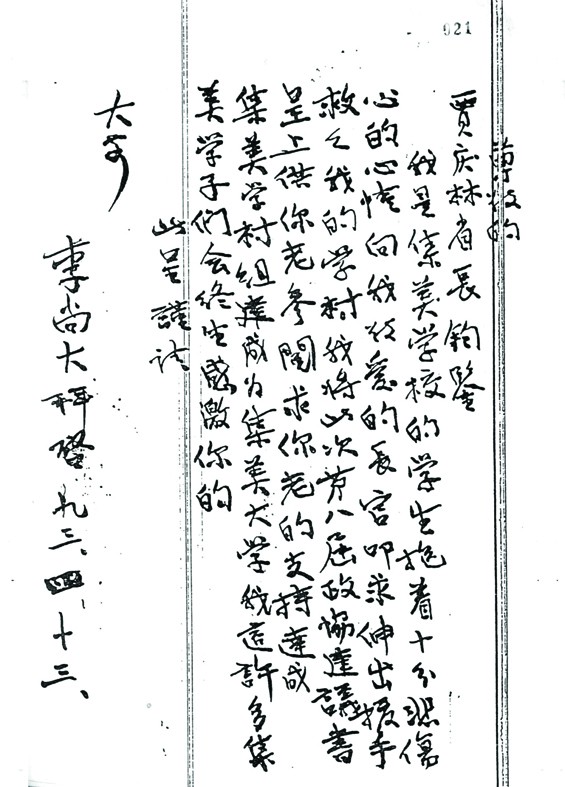 021
尊敬的
贾庆林省長 鈞鑒
我是集美学校的学生抱着十分悲傷
心的心情向我敬爱的長官叩求伸出援手
救之我的学村我将此次第八届政協建議書
呈上供你老参閱求你老的支持達成
集美学村组建成为集美大学我這許多集
美学子們会终生感激你的
此呈謹祝
大安
李尚大拜啓九三、四、十三、